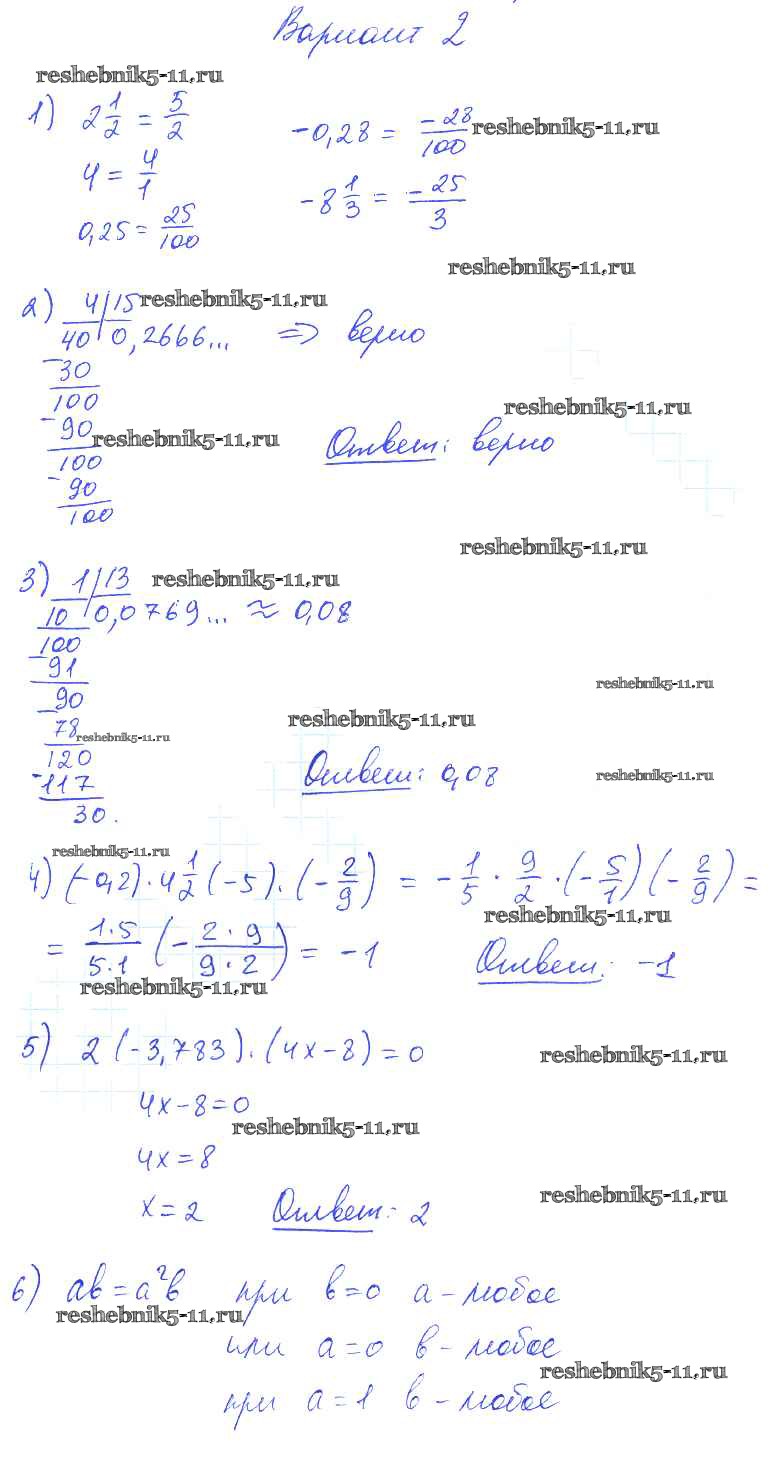 Вариант 2
reshebnik5-11.ru
1) 2 1/2 = 5/2 -0,28 = -28/100 reshebnik5-11.ru
4 = 4/1 -8 1/3 = -25/3
0,25 = 25/100
reshebnik5-11.ru
2) 4 | 15 reshebnik5-11.ru
40 0,2666... => верно
-30
100
reshebnik5-11.ru
-90 reshebnik5-11.ru Ответ: верно
100
-90
100
reshebnik5-11.ru
3) 1 | 13 reshebnik5-11.ru
10 0,0769... ≈ 0,08
100
-91
reshebnik5-11.ru
90
reshebnik5-11.ru
-78 reshebnik5-11.ru
120 Ответ: 0,08 reshebnik5-11.ru
-117
30.
reshebnik5-11.ru
4) (-0,2) · 4 1/2 (-5) · (-2/9) = -1/5 · 9/2 · (-5/1) (-2/9) =
reshebnik5-11.ru
= 1·5/5·1 (-2·9/9·2) = -1 Ответ: -1
reshebnik5-11.ru
5) 2 (-3,783) · (4x-8) = 0 reshebnik5-11.ru
4x-8=0
reshebnik5-11.ru
4x=8
reshebnik5-11.ru
x=2 Ответ: 2
6) ab=a²b при b=0 a-любое
reshebnik5-11.ru
или a=0 b-любое
reshebnik5-11.ru
при a=1 b-любое